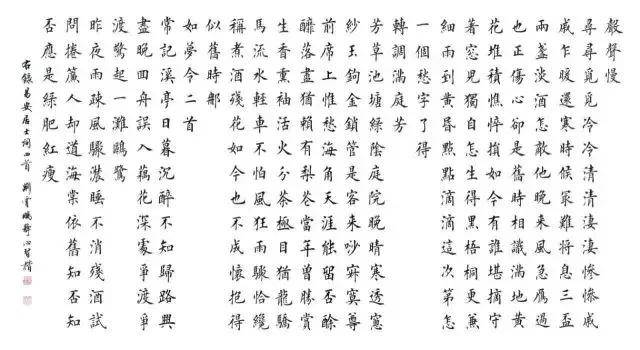 聲聲慢
尋尋覓覓冷冷清清淒淒慘慘戚
戚乍暖還寒時候最難將息三盃
兩盞淡酒怎敵他晚來風急雁過
也正傷心卻是舊時相識滿地黃
花堆積憔悴損如今有誰堪摘守
著窗兒獨自怎生得黑梧桐更兼
細雨到黃昏點點滴滴這次第怎
一個愁字了得
轉調滿庭芳
芳草池塘綠陰庭院晚晴寒透窗
紗玉鉤金鎖管是客來唦寂寞尊
前席上惟愁海角天涯能留否酴
醾落盡猶賴有梨花當年曾勝賞
生香熏袖活火分茶極目猶龍驕
馬流水輕車不怕風狂雨驟恰纔
稱煮酒殘花如今也不成懷抱得
似舊時那
如夢令二首
常記溪亭日暮沉醉不知歸路興
盡晚回舟誤入藕花深處爭渡爭
渡驚起一灘鷗鷺
昨夜雨疎風驟濃睡不消殘酒試
問捲簾人却道海棠依舊知否知
否應是綠肥紅瘦
右錄易安居士詞四首 劉雲靜心楷